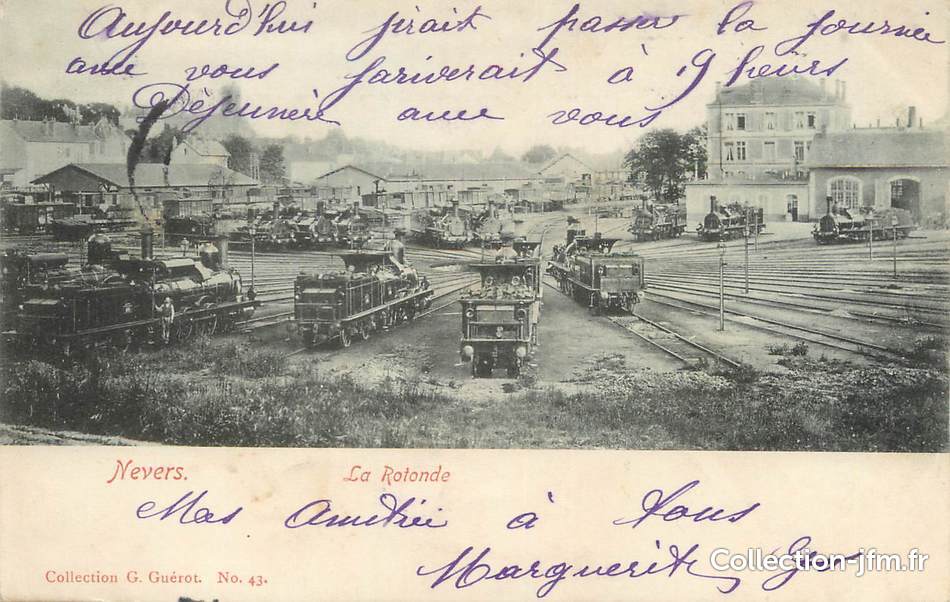 Aujourd'hui j'irait passer la journée
avec vous j'ariverait à 9 heures
Déjeunée avec vous
Nevers.
La Rotonde
Mas Amitiée à tous
Marguerite
Collection G. Guérot. No. 43.
Collection-jfm.fr